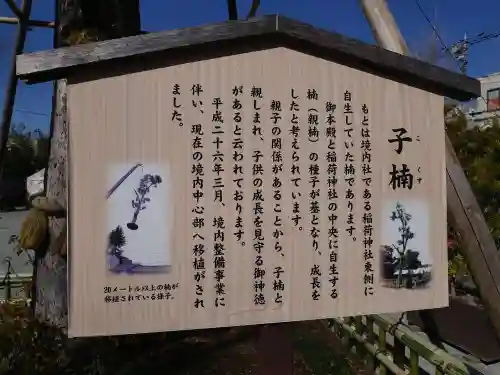 子楠
こくす
もとは境内社である稲荷神社東側に
自生していた楠であります。
御本殿と稲荷神社の中央に自生する
楠（親楠）の種子が基となり、成長を
したと考えられています。
親子の関係があることから、子楠と
親しまれ、子供の成長を見守る御神徳
があると云われております。
平成二十六年三月、境内整備事業に
伴い、現在の境内中心部へ移植がされ
ました。
20メートル以上の楠が
移植されている様子。